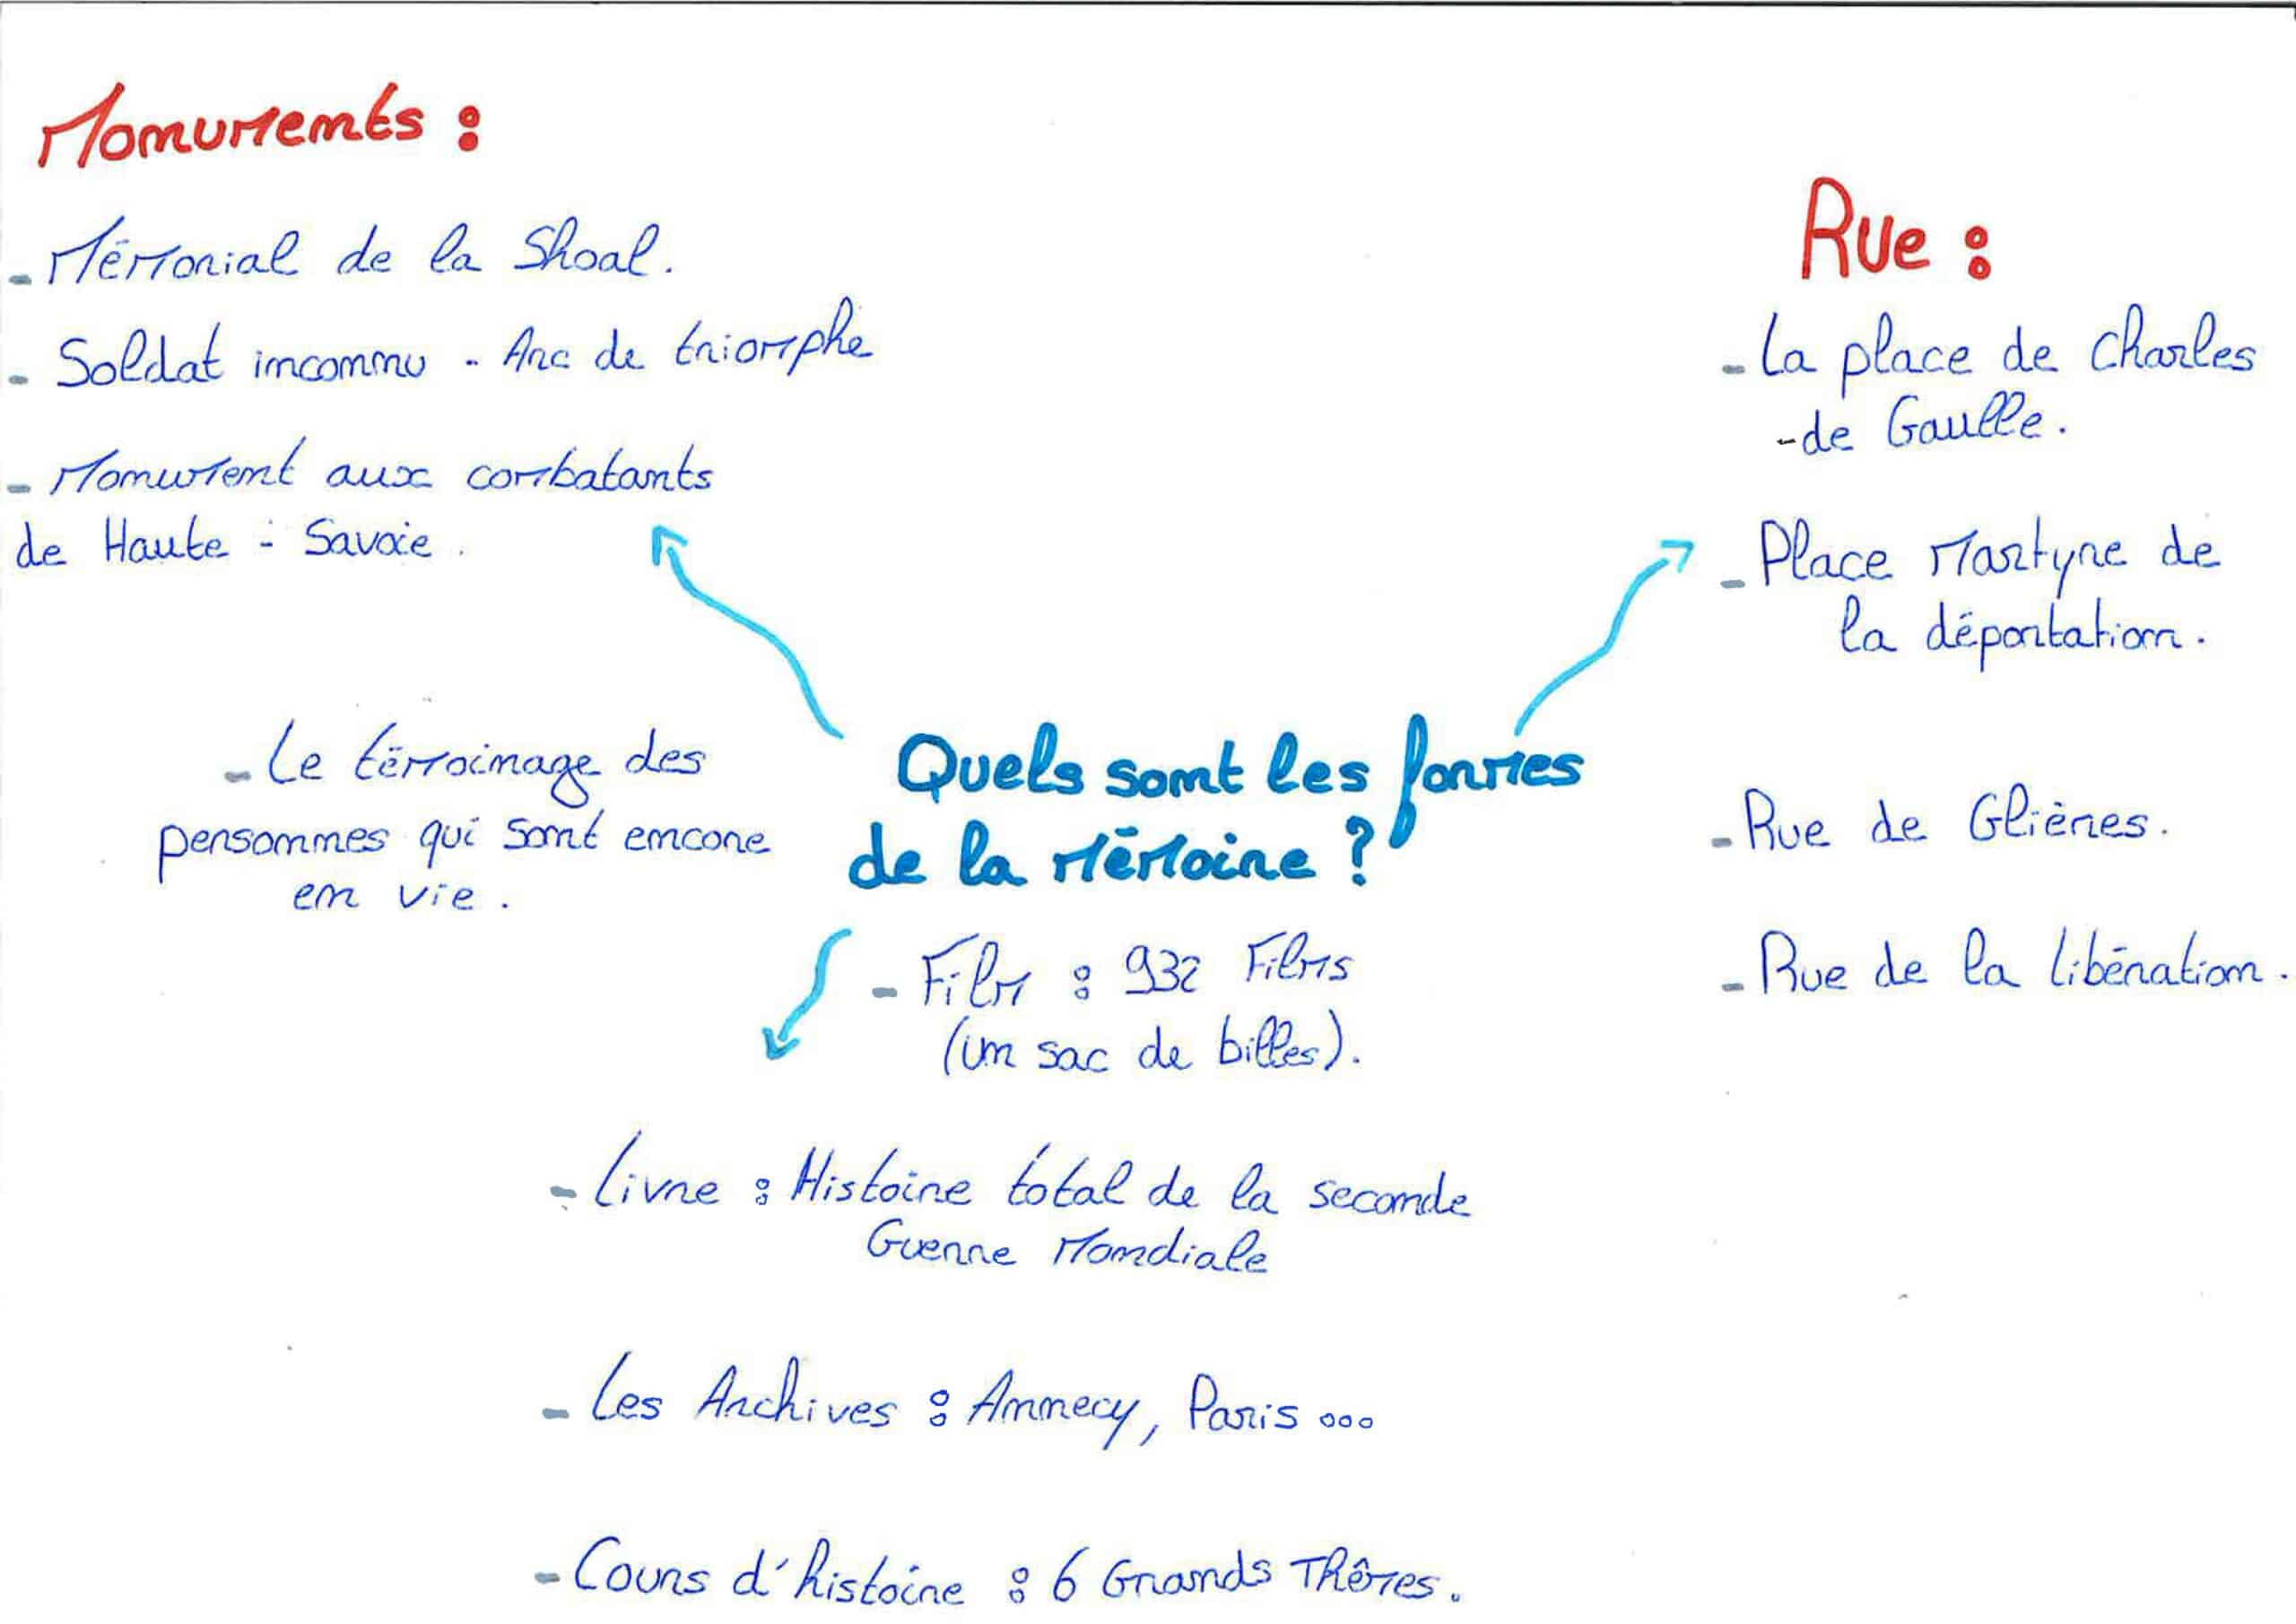 Monuments :
- Mémorial de la Shoal.
- Soldat inconnu - Arc de triomphe
- Monument aux combatants
de Haute - Savoie.
Rue :
- La place de Charles
-de Gaulle.
- Place Martyre de
la déportation.
- Rue de Glières.
- Rue de la libération.
Quels sont les formes
de la Mémoire ?
- Le témoinage des
personnes qui sont encore
en vie.
- Film : 932 Films
(un sac de billes).
- Livre : Histoire total de la seconde
Guerre Mondiale
- Les Archives : Annecy, Paris ...
- Cours d'histoire : 6 Grands Thêmes.